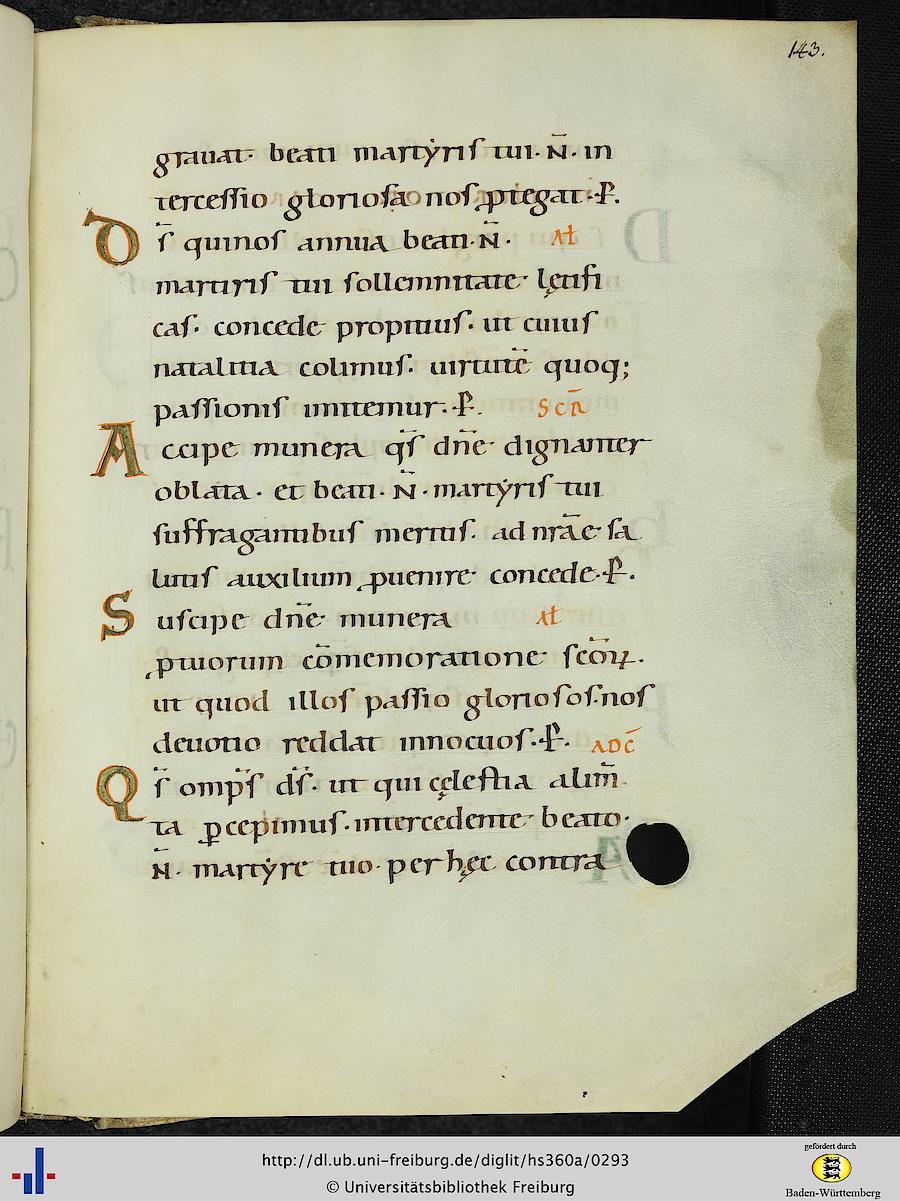 143.
grauat· beati martẏris tui·N̄·in
tercessio gloriosa nos ꝓtegat·P.
D s̄ qui nos annua beati·N̄· At
martiris tui sollemnitate lętifi
cas· concede propitius· ut cuius
natalitia colimus· uirtutē quoq;
passionis imitemur·P. Scr̄
A ccipe munera qs̄ dn̄e dignanter
oblata· et beati·N̄·martẏris tui
suffragantibus meritis· ad nr̄ae sa
lutis auxilium ꝓuenire concede·P.
S uscipe dn̄e munera At
ꝓ tuorum cōmemoratione sc̄oꝝ.
ut quod illos passio gloriosos·nos
deuotio reddat innocuos·P. ADC̄
Q s̄ omp̄s ds̄· ut qui cęlestia alim̄
ta ꝑcepimus·intercedente beato·
N̄· martẏre tuo·per hęc contra
http://dl.ub.uni-freiburg.de/diglit/hs360a/0293
© Universitätsbibliothek Freiburg
gefördert durch
Baden-Württemberg